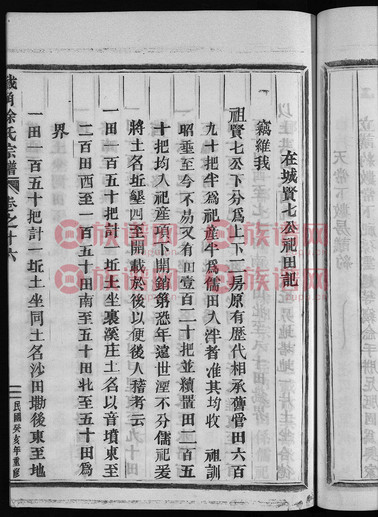 在城賢七公祀田記
竊維我
祖賢七公下分爲上下二房原有歷代相承舊管田六百
九十把半爲祀產半爲儒田入泮者准其均收 祖訓
昭垂至今不易又有田壹百二十把並續置田二百五
十把均入祀產項下開銷第恐年遠世湮不分儒祀爰
將土名坵墾四至開載於後以便後人稽考云
一田一百五十把計一坵土坐裏溪庄土名以音墳東至
二百田西至一百五十田南至五十田北至五十田爲
界
一田一百五十把計一坵土坐同土名沙田墈後東至地
徐氏宗譜
卷之十六
民國癸亥年重修
族譜网